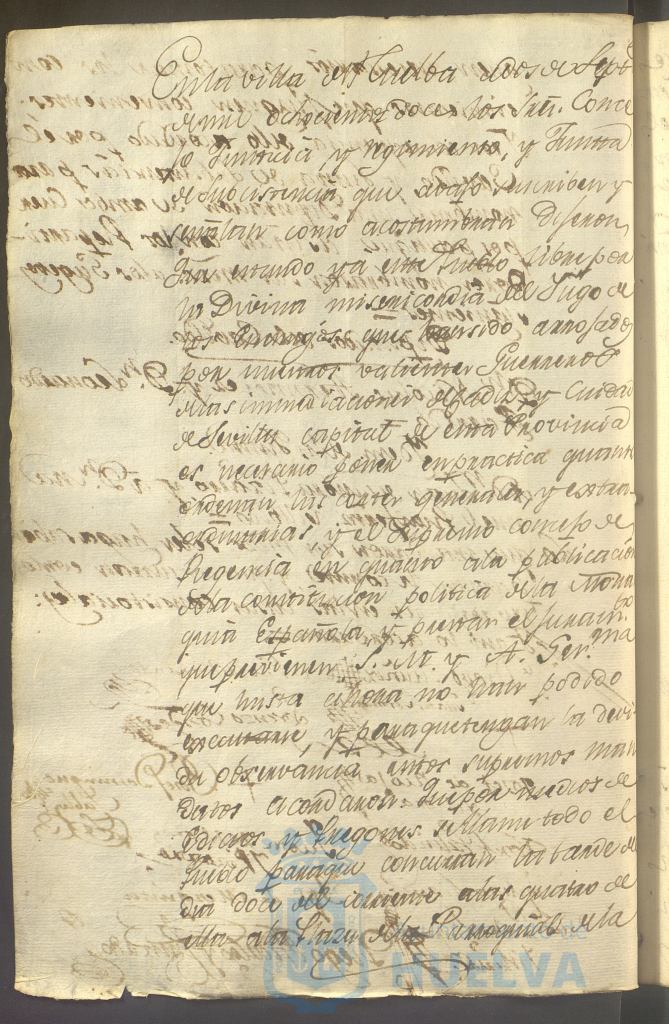 En la villa de Trualba a dos de Sept.e
de mil ochocientos doce los Sres. Conce
jo Justicia y regimiento, y Junta
de Subcistencia que abajo suscriben y
señalan como acostumbran Dijeron
Que estando ya este Pueblo libre por
la Divina misericordia del Jugo de
los Enemigos, que han sido arrojados
por nuestros valientes Guerreros
de las inmediaciones de Cadiz y Ciudad
de Sevilla capital de esta Provincia
es necesario poner en practica quanto
ordenan las cortes generales, y extra-
ordinarias, y el Supremo concejo de
Regencia en quanto a la publicacion
de la constitucion politica de la Monar
quia Española y prestar el juram.to
que previenen S. M. y A. Ser.ma
que hasta ahora no han podido
executarse, y para que tengan la devi
da observancia estos supremos man
datos acordaron: Que por medios de
Edictos y Pregones se llame todo el
Pueblo para que concurran la tarde del
dia doce del corriente a las quatro de
ella a la Plaza de la Parroquial de la
HUELVA